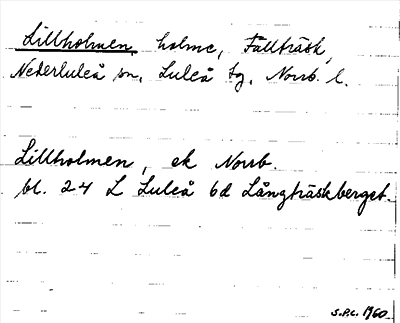 Lillholmen, holme, Fällträsk,
Nederluleå sn, Luleå tg, Norrb. l.
Lillholmen, ek Norrb.
bl. 24 L Luleå 6d Långträskberget.
S.P.C. 1960